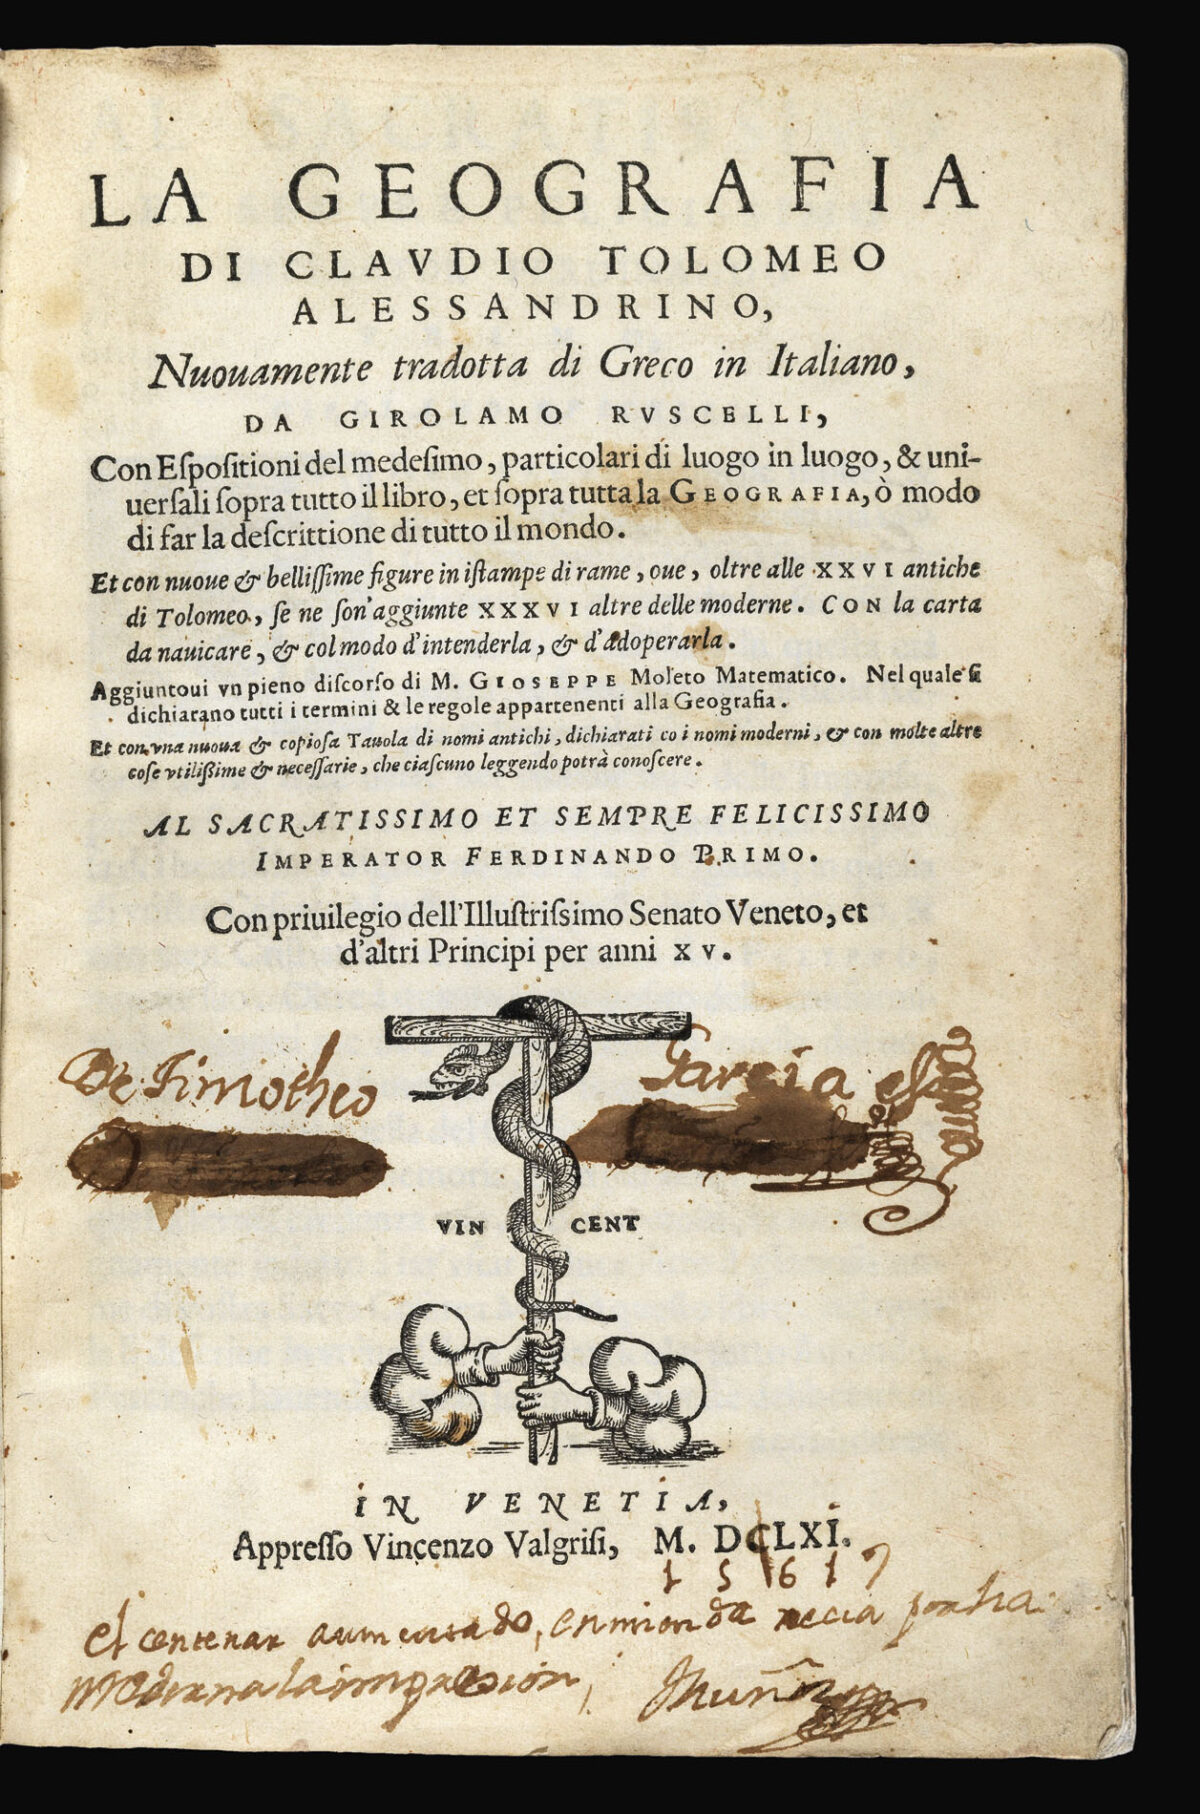 LA GEOGRAFIA
DI CLAVDIO TOLOMEO
ALESSANDRINO,
Nuouamente tradotta di Greco in Italiano,
DA GIROLAMO RVSCELLI,
Con Eſpoſitioni del medeſimo, particolari di luogo in luogo, & uni-
uerſali ſopra tutto il libro, et ſopra tutta la GEOGRAFIA, ò modo
di far la deſcrittione di tutto il mondo.
Et con nuoue & belliſſime figure in iſtampe di rame, oue, oltre alle XXVI antiche
di Tolomeo, ſe ne ſon'aggiunte XXXVI altre delle moderne. CON la carta
da nauicare, & col modo d'intenderla, & d'adoperarla.
Aggiuntoui vn pieno diſcorſo di M. GIOSEPPE Moleto Matematico. Nel quale ſi
dichiarano tutti i termini & le regole appartenenti alla Geografia.
Et con vna nuoua & copioſa Tauola di nomi antichi, dichiarati co i nomi moderni, & con molte altre
coſe vtiliſſime & neceſſarie, che ciaſcuno leggendo potrà conoſcere.
AL SACRATISSIMO ET SEMPRE FELICISSIMO
IMPERATOR FERDINANDO PRIMO.
Con priuilegio dell'Illuſtriſsimo Senato Veneto, et
d'altri Principi per anni XV.
De Timotheo Garcia
VIN CENT
IN VENETIA,
Appreſſo Vincenzo Valgriſi, M. DCLXI.
1 5 6 1
el centenar aumentado,